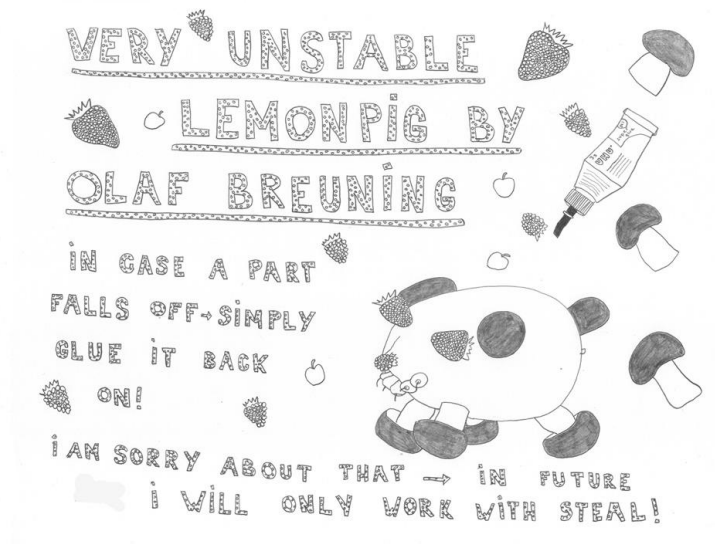 VERY UNSTABLE
LEMONPiG BY
OLAF BREUNiNG
iN CASE A PART
FALLS OFF→SiMPLY
GLUE iT BACK
ON!
i AM SORRY ABOUT THAT → iN FUTURE
i WiLL ONLY WORK WiTH STEAL!